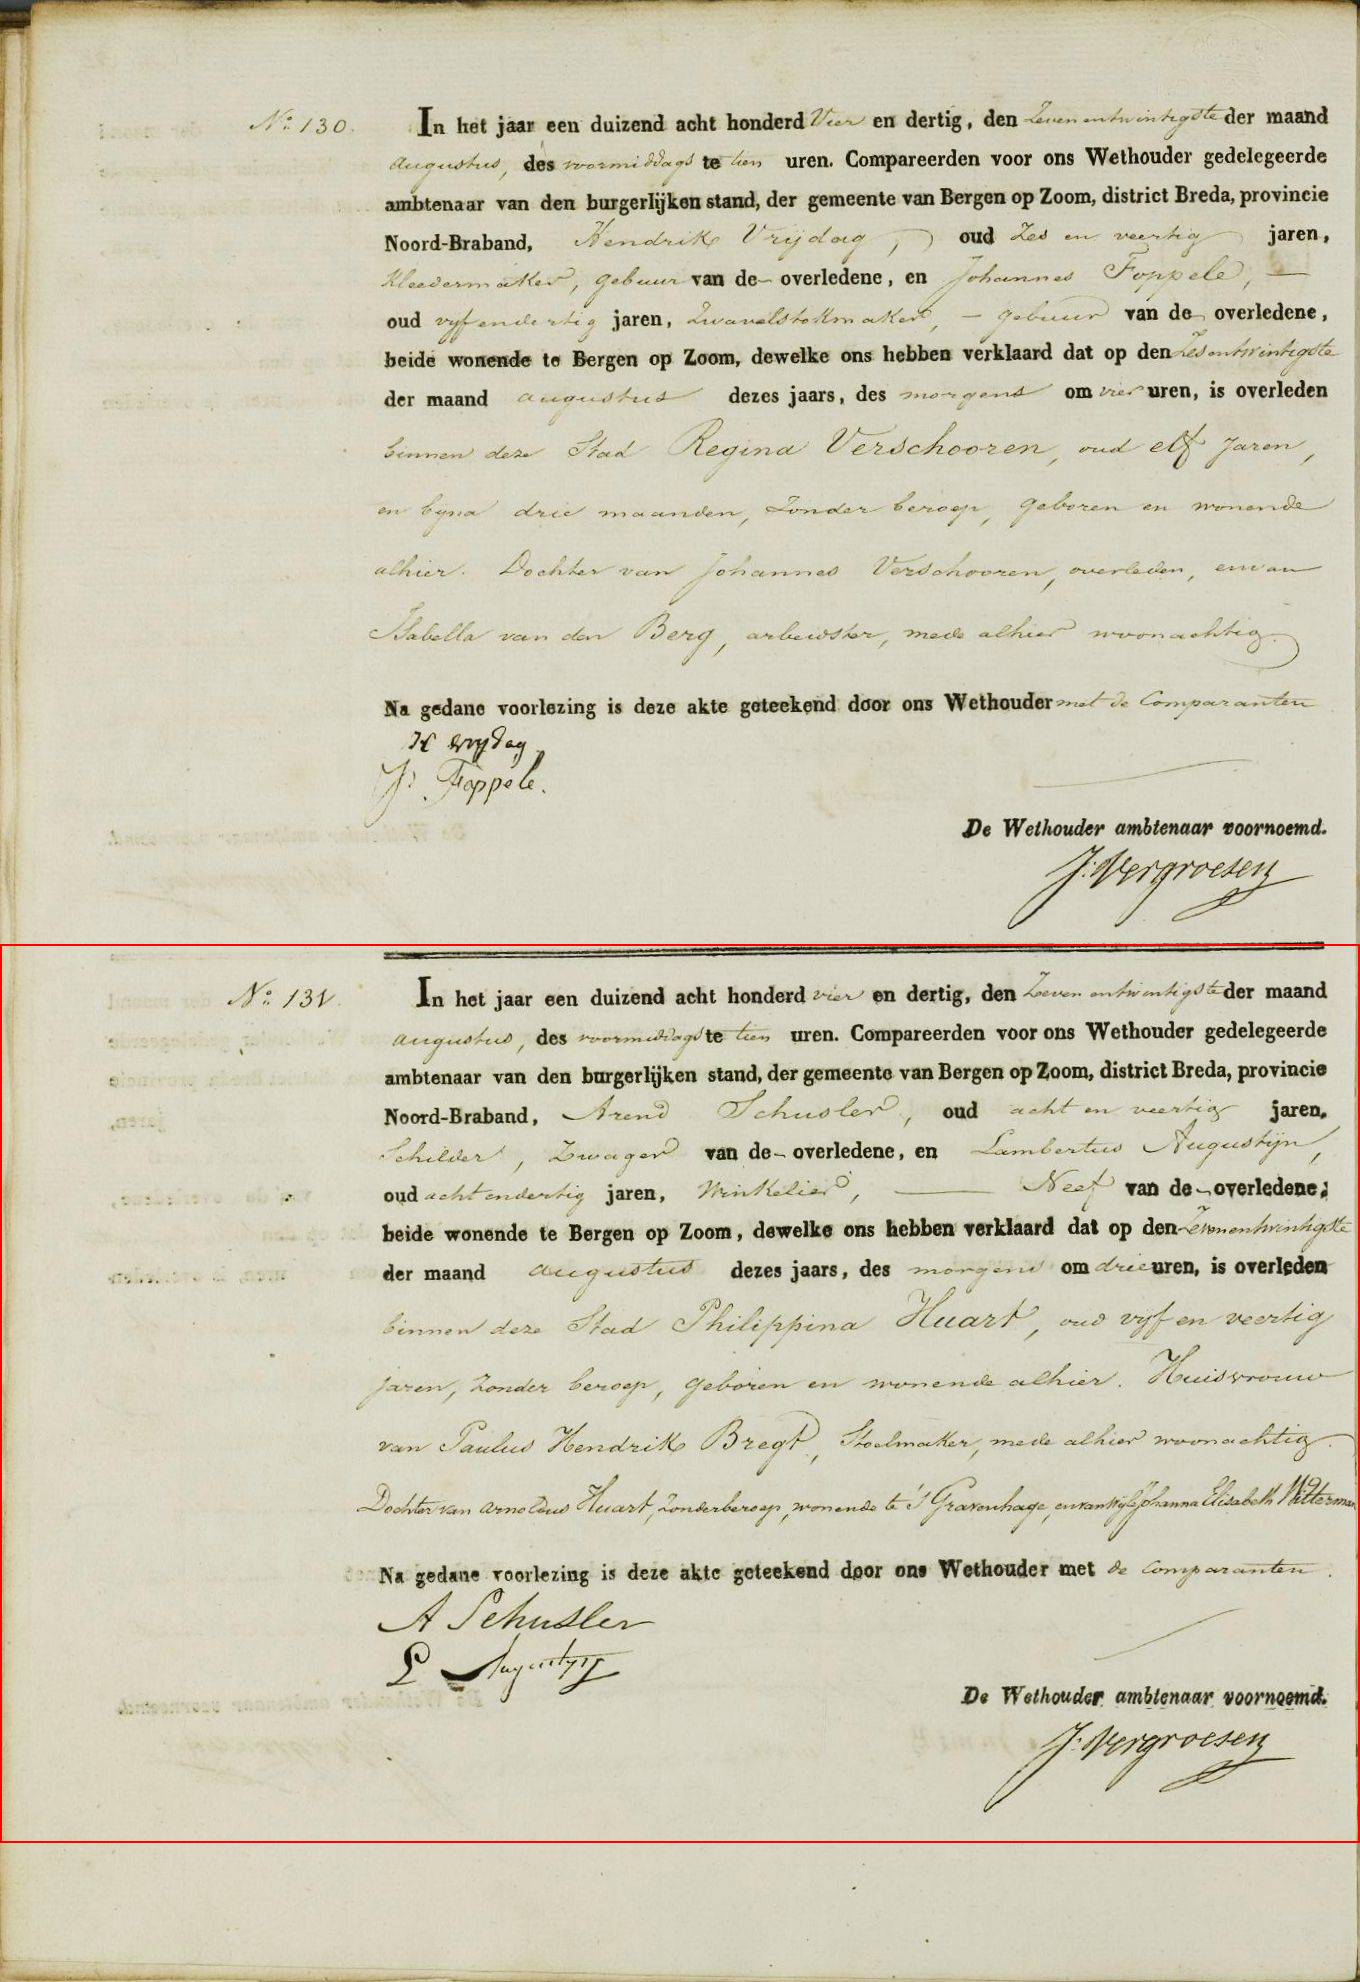 N.º 130.
In het jaar een duizend acht honderd Vier en dertig, den Zevenentwintigste der maand
augustus, des voormiddags te tien uren. Compareerden voor ons Wethouder gedelegeerde
ambtenaar van den burgerlijken stand, der gemeente van Bergen op Zoom, district Breda, provincie
Noord-Braband, Hendrik Vrijdag, oud Zes en veertig jaren,
Kleedermaker, gebuur van de overledene, en Johannes Foppele, —
oud vyfendertig jaren, Zwavelstokmaker, — gebuur van de overledene,
beide wonende te Bergen op Zoom, dewelke ons hebben verklaard dat op den Zesentwintigste
der maand augustus dezes jaars, des morgens om vier uren, is overleden
binnen deze Stad Regina Verschooren, oud elf jaren,
en byna drie maanden, Zonder beroep, geboren en wonende
alhier. Dochter van Johannes Verschooren, overleden, en van
Isabella van den Berg, arbeidster, mede alhier woonachtig.
Na gedane voorlezing is deze akte geteekend door ons Wethouder met de Comparanten
H vrijdag
J. Foppele.
De Wethouder ambtenaar voornoemd.
J. Vergroesen
N.º 131.
In het jaar een duizend acht honderd vier en dertig, den Zevenentwintigste der maand
augustus, des voormiddags te tien uren. Compareerden voor ons Wethouder gedelegeerde
ambtenaar van den burgerlijken stand, der gemeente van Bergen op Zoom, district Breda, provincie
Noord-Braband, Arend Schusler, oud acht en veertig jaren,
Schilder, Zwager van de overledene, en Lambertus Augustijn,
oud achtendertig jaren, Winkelier, — Neef van de overledene,
beide wonende te Bergen op Zoom, dewelke ons hebben verklaard dat op den Zevenentwintigste
der maand augustus dezes jaars, des morgens om drie uren, is overleden
binnen deze Stad Philippina Huart, oud vijf en veertig
jaren, Zonder beroep, geboren en wonende alhier. Huisvrouw
van Paulus Hendrik Bregt, Stoelmaker, mede alhier woonachtig.
Dochter van Arnoldus Huart, Zonder beroep, wonende te 's Gravenhage, en van wyle Johanna Elisabeth Witterman
Na gedane voorlezing is deze akte geteekend door ons Wethouder met de Comparanten.
A Schusler
L Augustijn
De Wethouder ambtenaar voornoemd.
J. Vergroesen